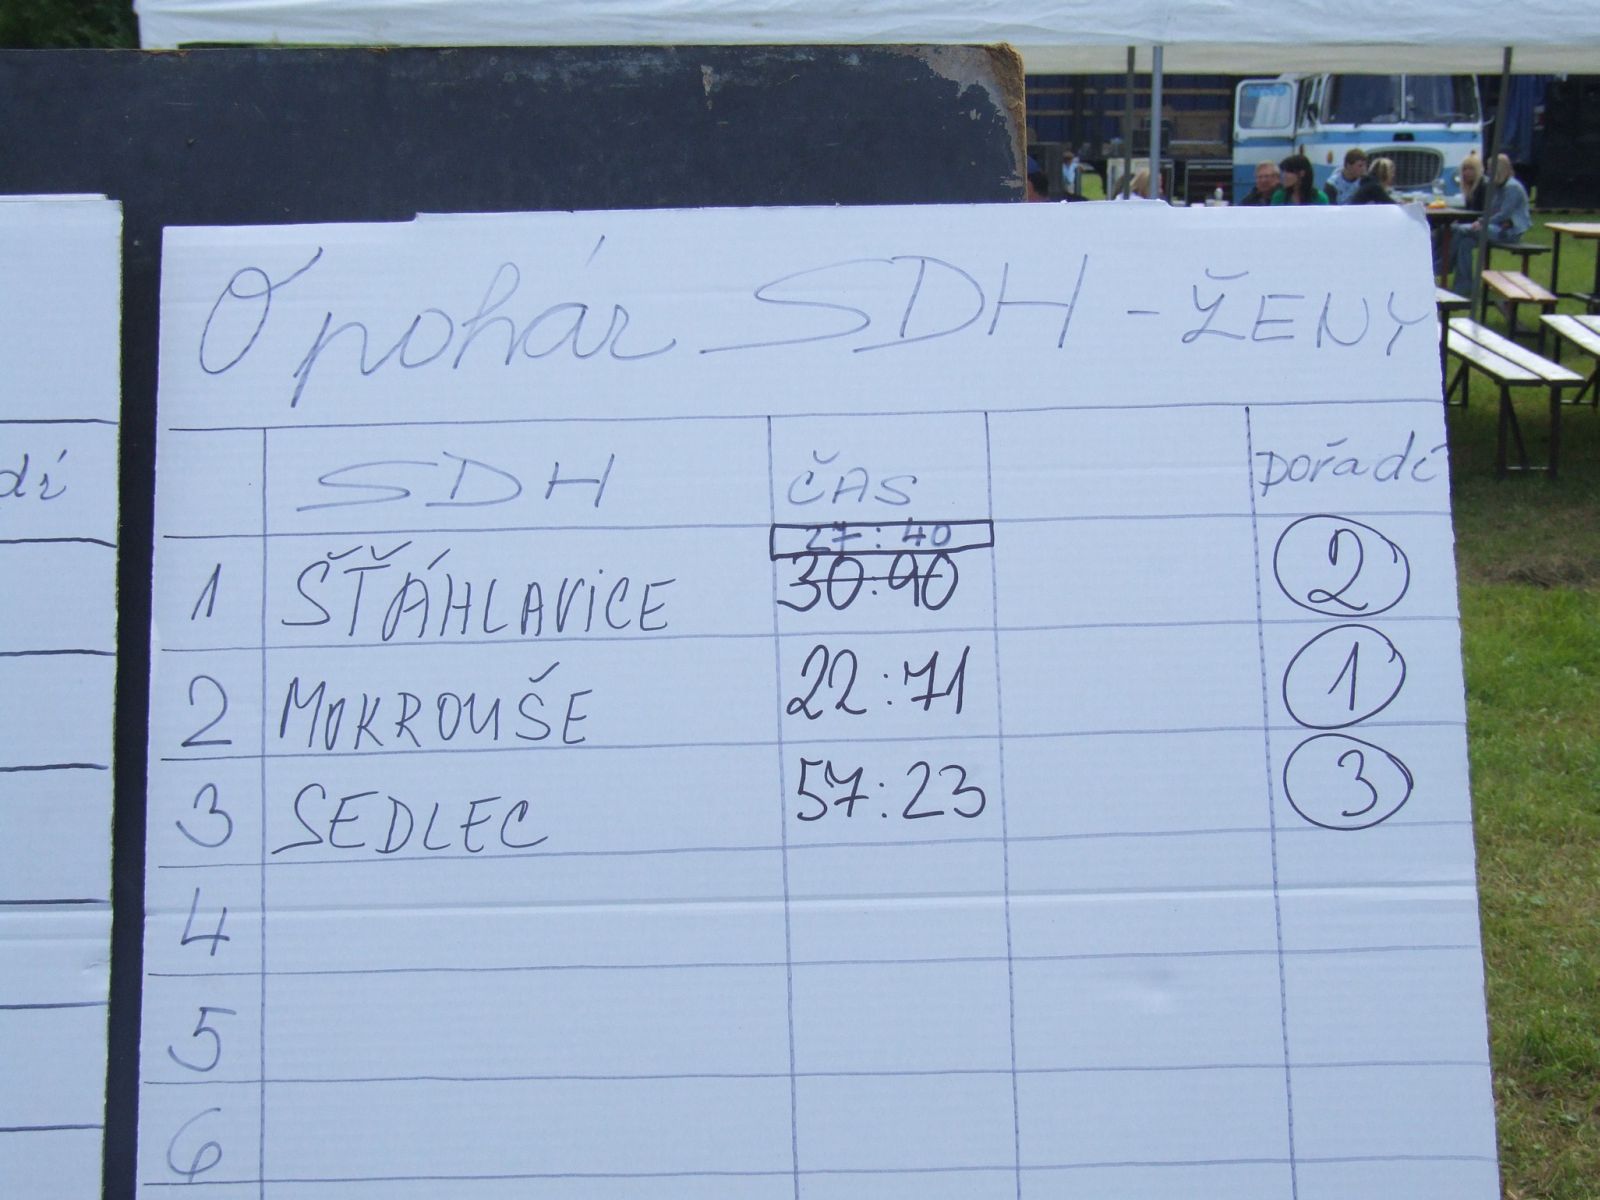 O pohár SDH - ŽENY
SDH ČAS pořadí
27:40
1 ŠŤÁHLAVICE 30:90 2
2 MOKROUŠE 22:71 1
3 SEDLEC 57:23 3
4
5
6